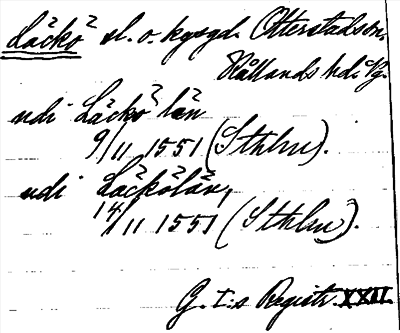 Läckö sl. o. kyrgd. Otterstads sn,
Kållands hd. Sg.
udi Läckö län
9/11 1551 (Sthlm).
udi Läckölän,
14/11 1551 (Sthlm).
G. I:s Registr. XXII.